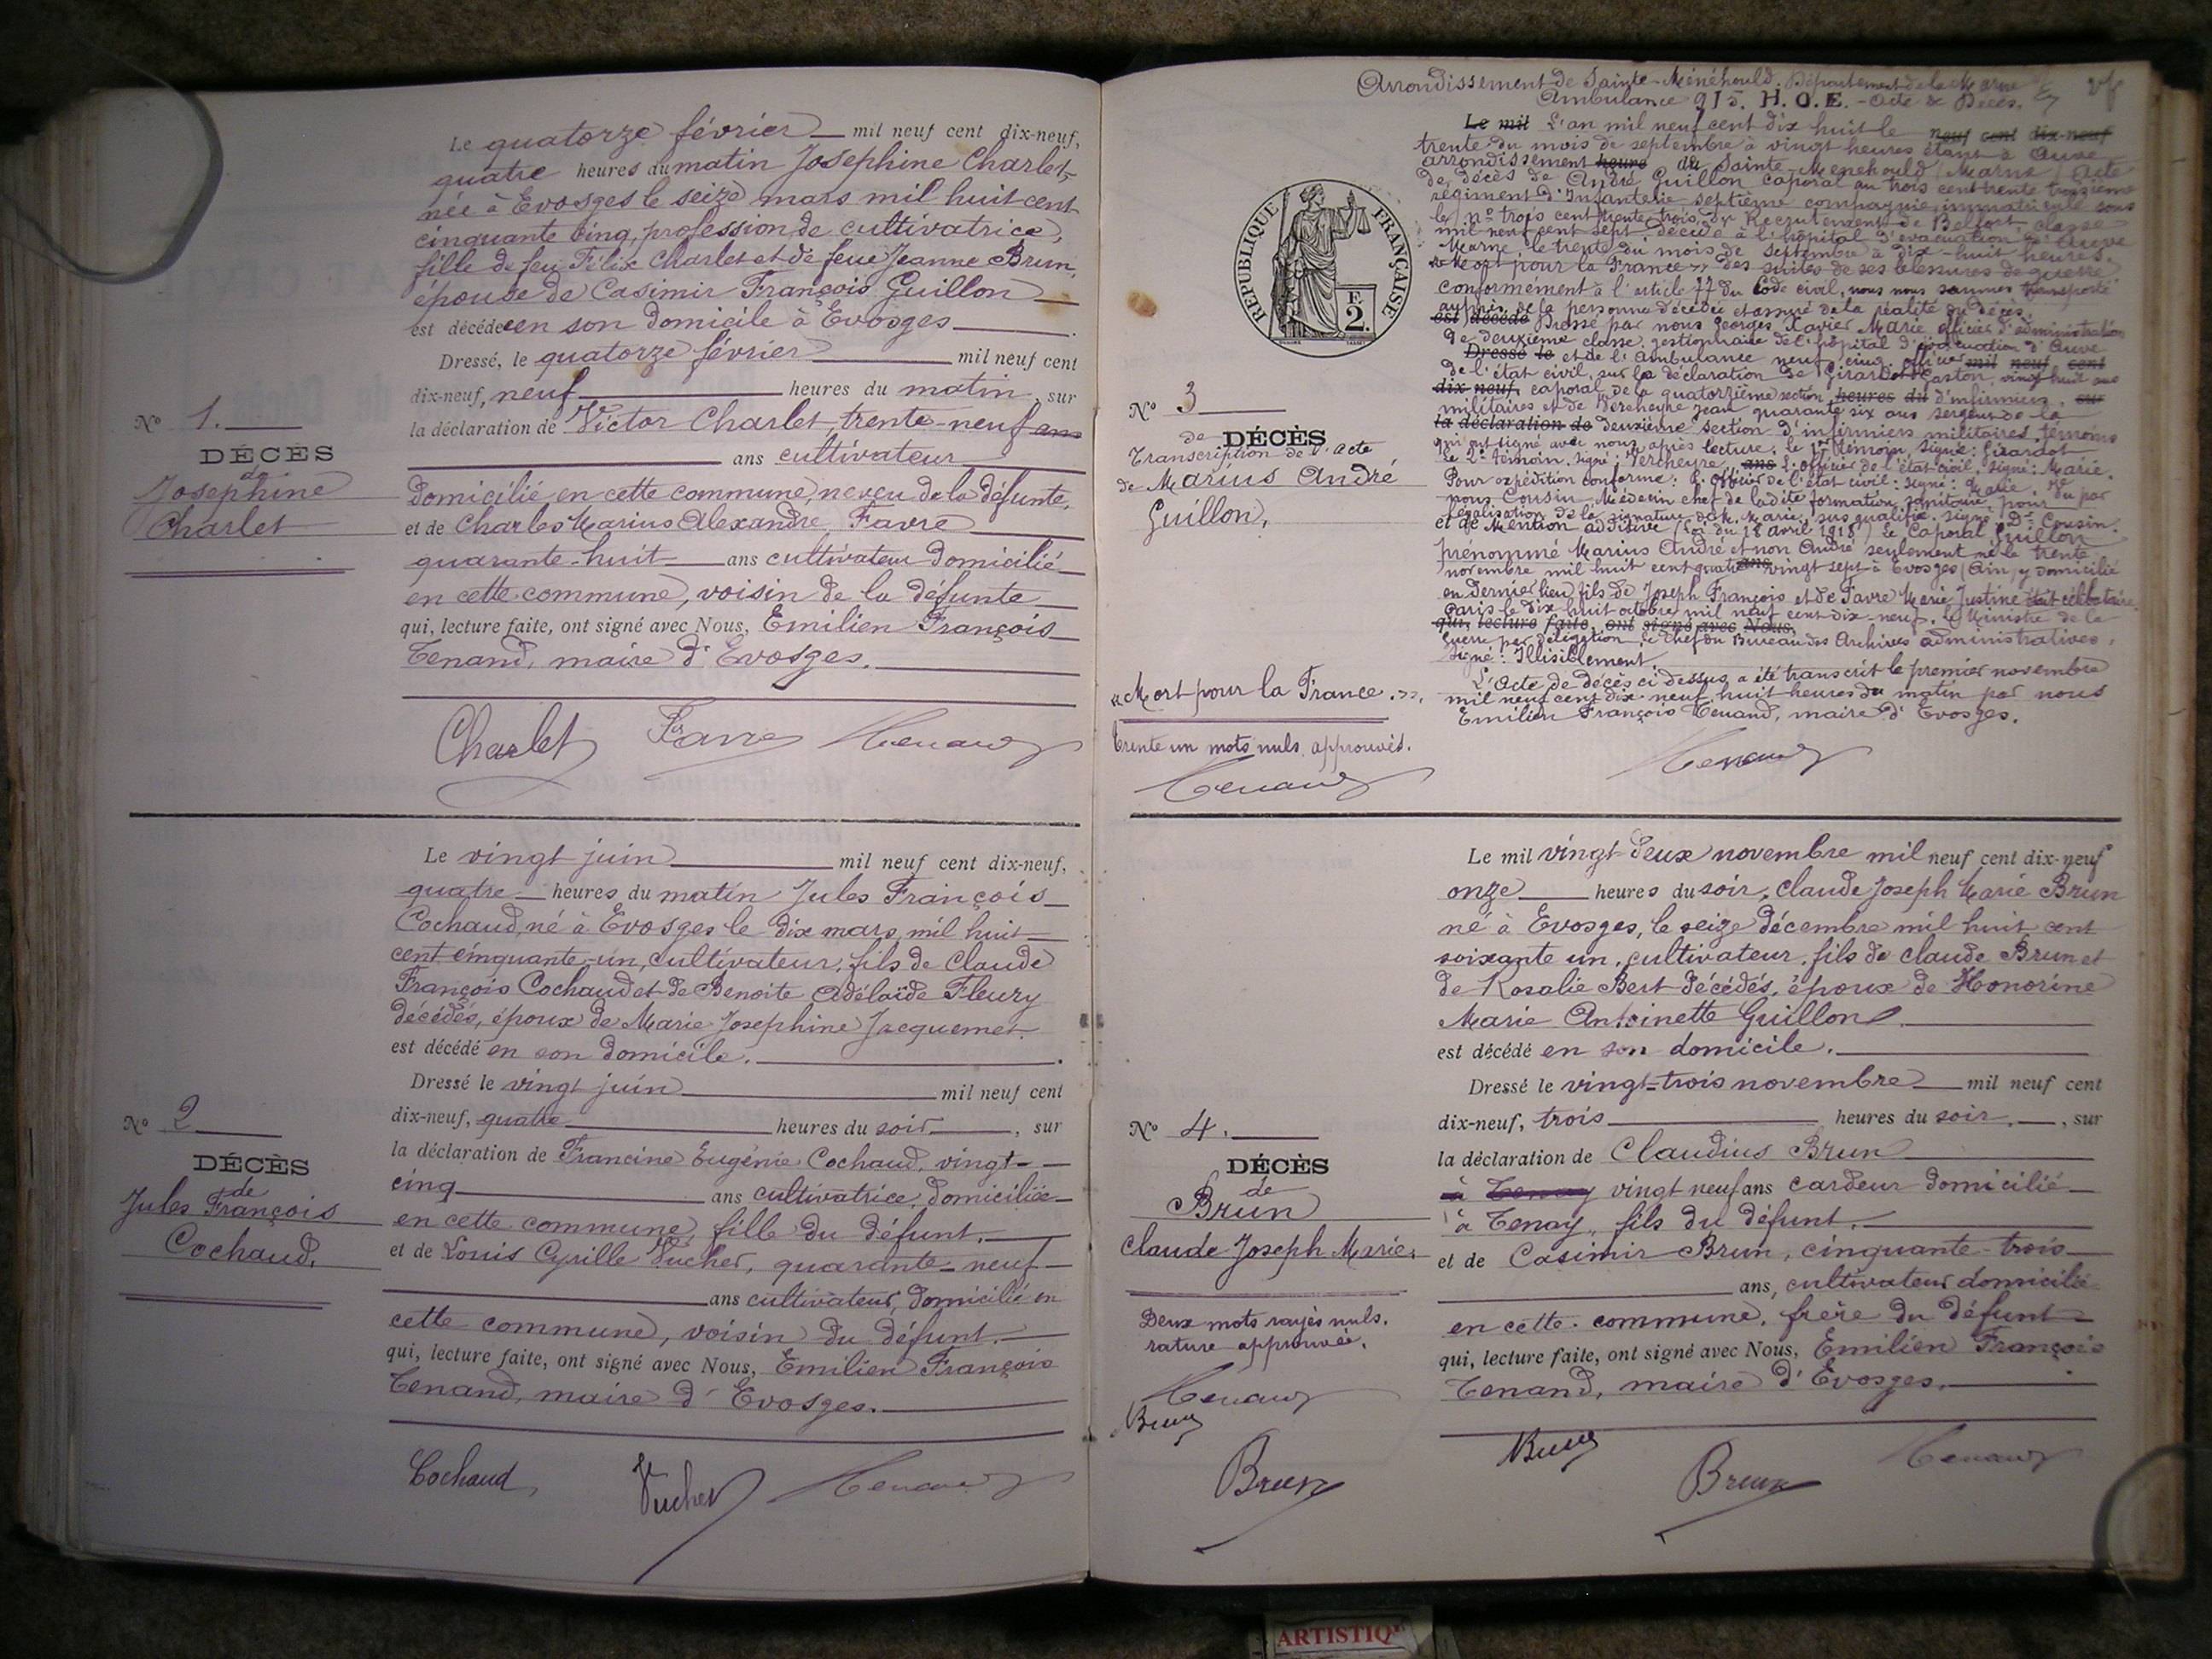 Le quatorze février mil neuf cent dix-neuf,
quatre heures du matin Josephine Charlet,
née à Evosges le seize mars mil huit cent
cinquante cinq, profession de cultivatrice,
fille de feu Félix Charlet et de feue Jeanne Brun,
épouse de Casimir François Guillon
est décédée en son domicile à Evosges
Dressé, le quatorze février mil neuf cent
dix-neuf, neuf heures du matin, sur
la déclaration de Victor Charlet, trente-neuf ans
ans cultivateur
domicilié en cette commune, neveu de la défunte,
et de Charles Marius Alexandre Favre
quarante-huit ans cultivateur domicilié
en cette commune, voisin de la défunte
qui, lecture faite, ont signé avec Nous, Emilien François
Tenand, maire d'Evosges.
Nº 1.
DÉCÈS
de
Josephine
Charlet
Charlet Favre Tenand
Le vingt juin mil neuf cent dix-neuf,
quatre heures du matin Jules François
Cochaud, né à Evosges le dix mars mil huit
cent cinquante-un, cultivateur, fils de Claude
François Cochaud et de Benoite Adélaïde Fleury
décédés, époux de Marie Josephine Jacquemet.
est décédé en son domicile.
Dressé le vingt juin mil neuf cent
dix-neuf, quatre heures du soir, sur
la déclaration de Francine Eugénie Cochaud, vingt-
cinq ans cultivatrice, domiciliée
en cette commune, fille du défunt.
et de Louis Cyrille Vucher, quarante-neuf
ans cultivateur, domicilié en
cette commune, voisin du défunt.
qui, lecture faite, ont signé avec Nous, Emilien François
Tenand, maire d'Evosges.
Nº 2
DÉCÈS
de
Jules François
Cochaud.
Cochaud, Vucher Tenand
Arrondissement de Sainte-Ménéhould. Département de la Marne
Ambulance 9/5. H.O.E. - Acte de Décès.
Le mil L'an mil neuf cent dix huit le neuf cent dix-neuf
trente du mois de septembre à vingt heures étant à Auve
arrondissement heure du Sainte-Menehould (Marne) Acte
de décès de André Guillon caporal au trois cent trente troisième
régiment d'Infanterie septième compagnie, immatriculé sous
le nº trois cent trente trois, du Recrutement de Belfort, classe
mil neuf cent sept décédé à l'hôpital d'évacuation d'Auve
Marne le trente du mois de septembre à dix-huit heures.
« Mort pour la France » des suites de ses blessures de guerre
conformément à l'article 77 du Code civil, nous nous sommes transporté
auprès de la personne décédée et assuré de la réalité du décès.
est décédé Dressé par nous Georges Xavier Marie officier d'administration
de deuxième classe, gestionnaire de l'hôpital d'évacuation d'Auve
Dressé le et de l'Ambulance neuf cinq, officier mil neuf cent
de l'état civil, sur la déclaration de Girardot Gaston, vingt huit ans
dix-neuf, caporal de la quatorzième section heures du d'infirmiers, sur
militaires et de Vercheyre Jean quarante six ans sergent de la
la déclaration de deuxième section d'infirmiers militaires, témoins
qui ont signé avec nous après lecture: le 1er témoin, signé: Girardot
le 2e témoin, signé: Vercheyre, ans L'officier de l'état civil, signé: Marie.
Pour expédition conforme: L'officier de l'état civil: signé: Marie. Vu par
nous Cousin Médecin chef de ladite formation sanitaire, pour
légalisation de la signature de M. Marie, sus qualifié. signé Dr Cousin.
et de Mention additive (Loi du 18 avril 1918) Le Caporal Guillon
prénommé Marius André et non André seulement né le trente
novembre mil huit cent quatre ans vingt sept à Evosges (Ain) y domicilié
en dernier lieu fils de Joseph François et de Favre Marie Justine était célibataire.
Paris le dix huit octobre mil neuf cent dix-neuf. Le Ministre de la
qui, lecture faite, ont signé avec Nous,
Guerre par délégation le Chef du Bureau des Archives administratives.
Signé: Illisiblement.
L'Acte de décès ci dessus a été transcrit le premier novembre
mil neuf cent dix-neuf, huit heures du matin par nous
Emilien François Tenand, maire d'Evosges.
Tenand
REPUBLIQUE FRANÇAISE
F.
2.
Nº 3
de DÉCÈS
Transcription de l'acte
de Marius André
Guillon,
« Mort pour la France. »
Trente un mots nuls approuvés.
Tenand
Le mil vingt-deux novembre mil neuf cent dix-neuf
onze heures du soir, Claude Joseph Marie Brun
né à Evosges, le seize décembre mil huit cent
soixante un, cultivateur, fils de Claude Brun et
de Rosalie Bert décédés, époux de Honorine
Marie Antoinette Guillon
est décédé en son domicile.
Dressé le vingt-trois novembre mil neuf cent
dix-neuf, trois heures du soir, sur
la déclaration de Claudius Brun
à Tenay vingt neuf ans cardeur domicilié
à Tenay, fils du défunt.
et de Casimir Brun, cinquante-trois
ans, cultivateur domicilié
en cette commune, frère du défunt
qui, lecture faite, ont signé avec Nous, Emilien François
Tenand, maire d'Evosges.
Nº 4.
DÉCÈS
de
Brun
Claude Joseph Marie.
Deux mots rayés nuls.
rature approuvée.
Tenand
Brun
Brun
Brun Brun Tenand
ARTISTIQ